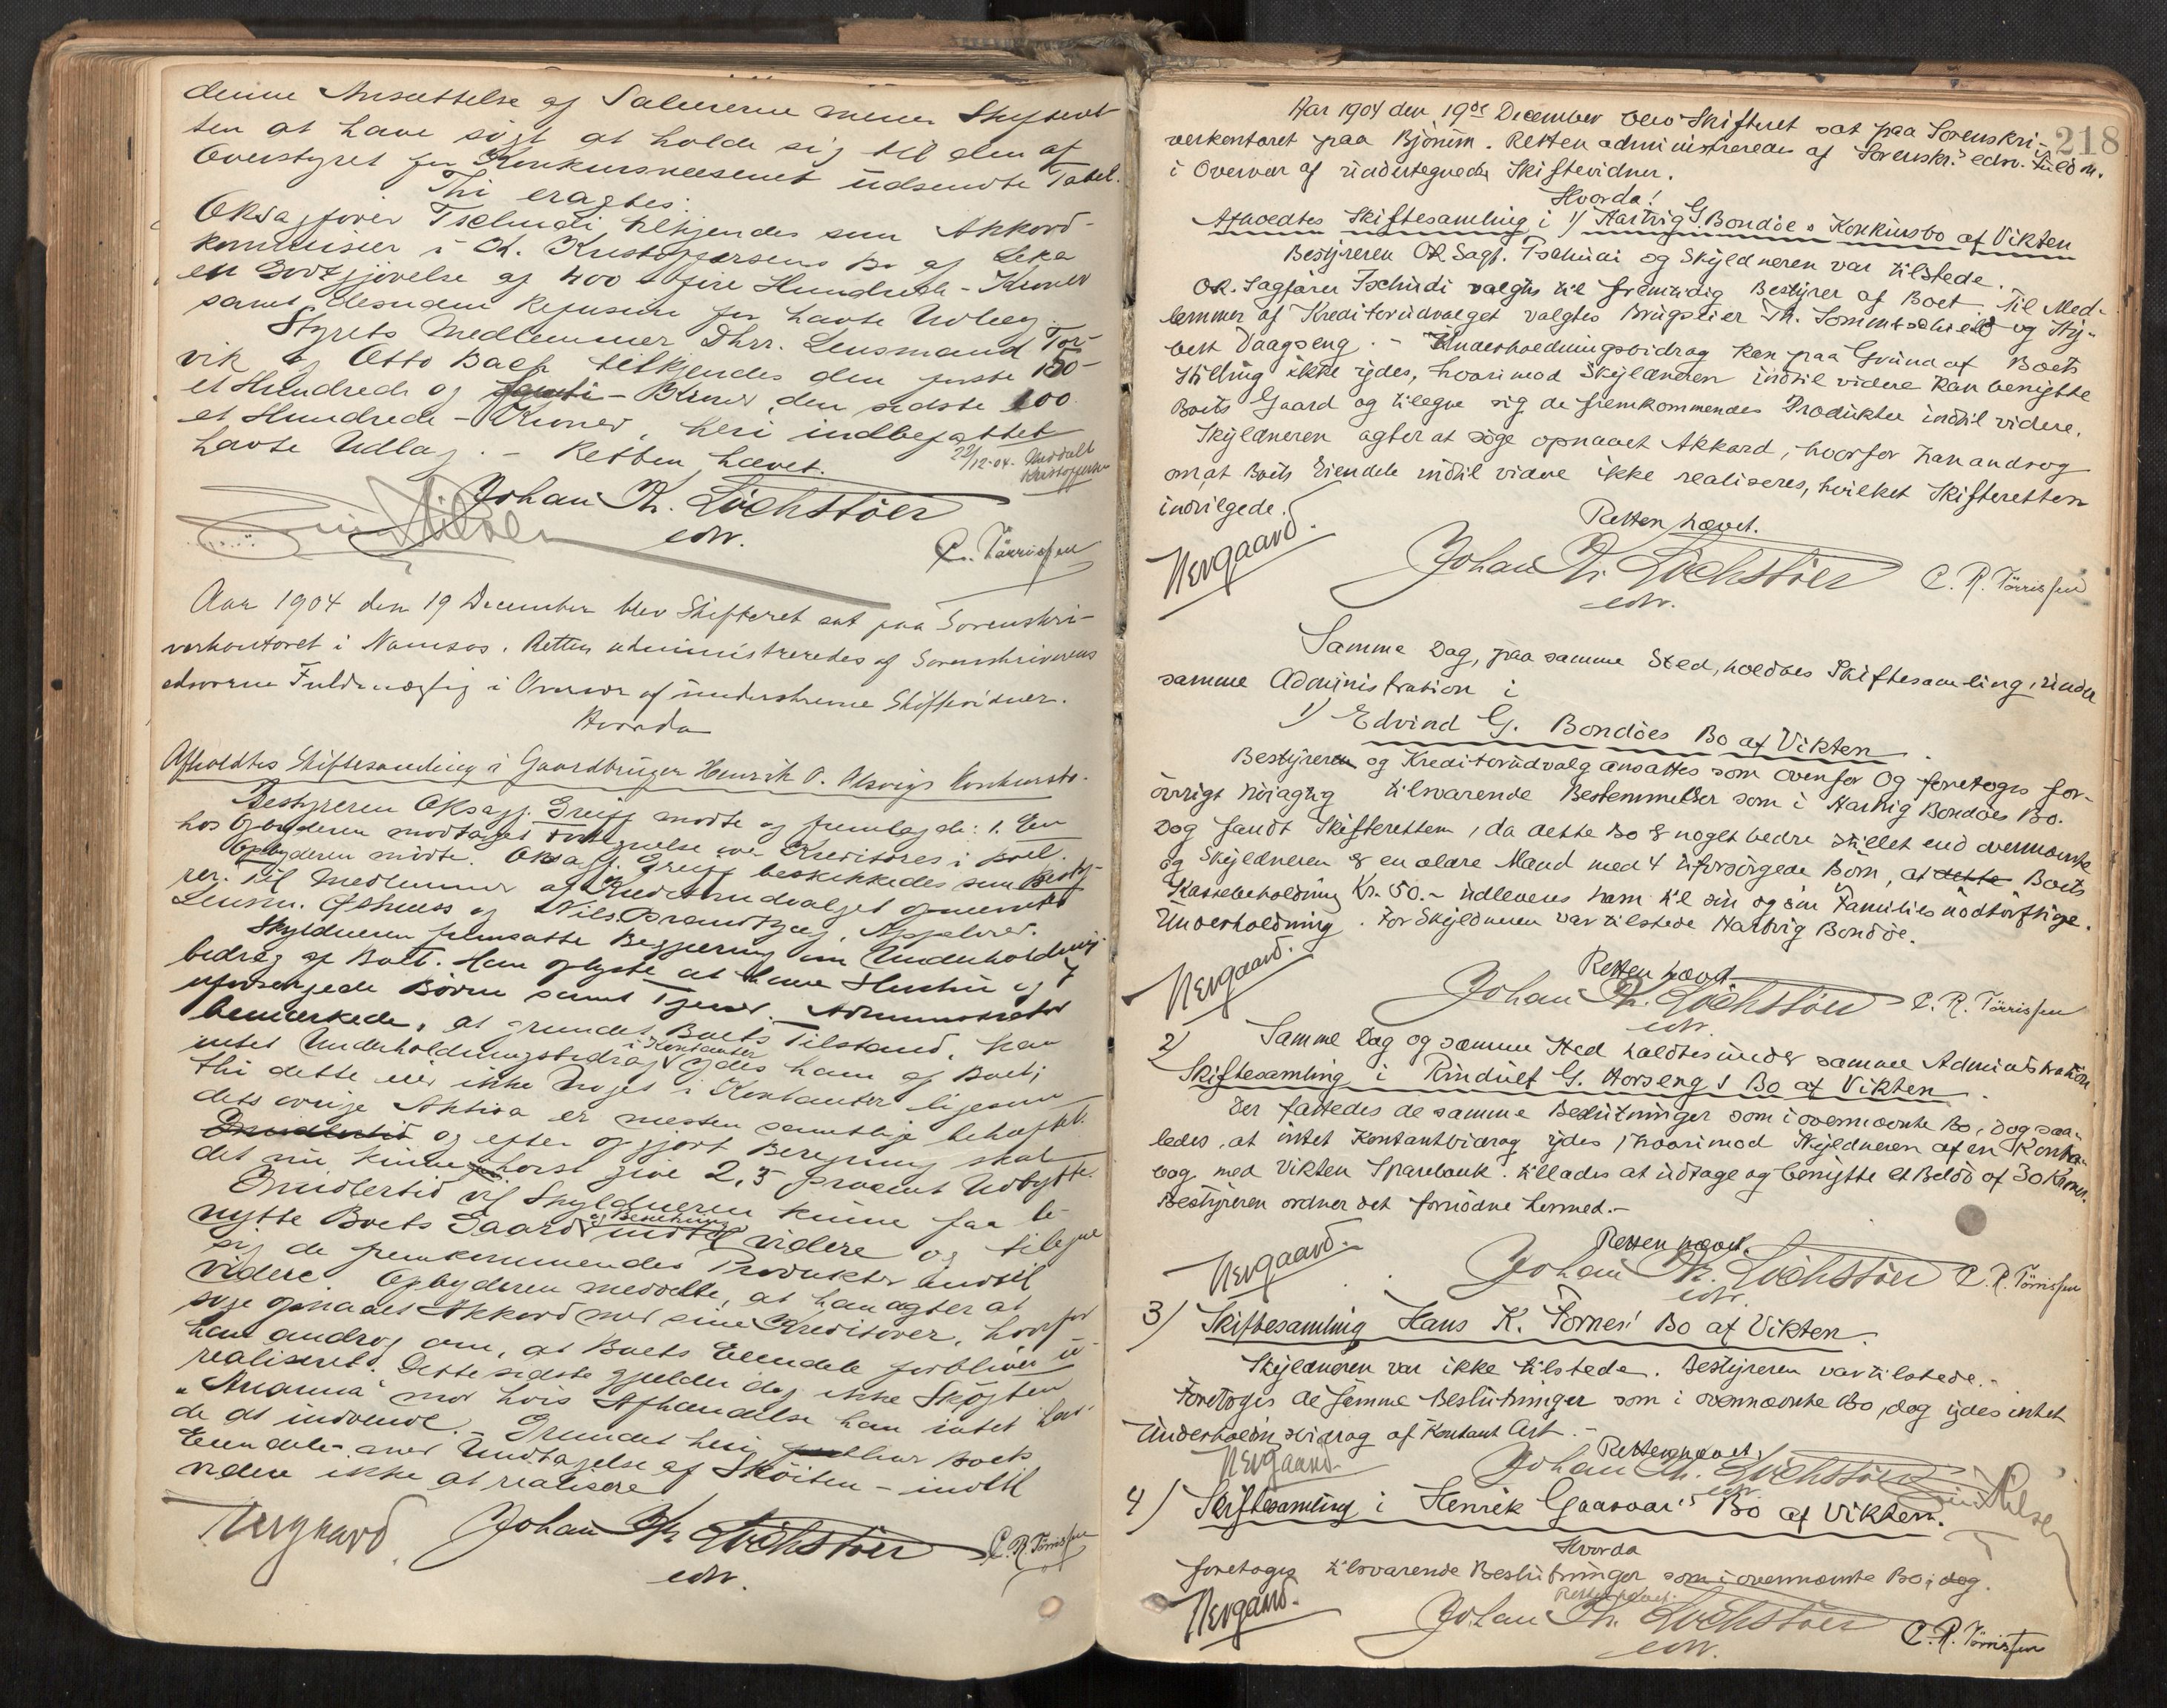 denne Ansættelse af Salærerne mener Skifteret-
ten at have søgt at holde sig til den af
Overstyret for Konkursvæsenet udsendte Tabel.
Thi eragtes:
ORsagfører Tschudi tilkjendes som Akkord-
kommisær i Ch. Kristoffersens Bo af Leka
en Godtgjørelse af 400 – fire Hundrede – Kroner
samt desuden Refusion for havte Udlæg.
Styrets Medlemmer Dhrr. Lensmand Tor-
vik og Otto Bach tilkjendes den første 150 –
et Hundrede og femti – Kroner, den sidste 100
et Hundrede – Kroner, heri indbefattet
havte Udlæg. – Retten hævet.
22/12-04. Meddelt
Kristoffersen
Johan Th. Löchstöer
edv.
C. R. Tørrissen
Aar 1904 den 19 December blev Skifteret sat paa Sorenskri-
verkontoret i Namsos. Retten administreredes af Sorenskriverens
edsvorne Fuldmægtig i Overvær af underskrevne Skiftevidner.
Hvorda
Afholdtes Skiftesamling i Gaardbruger Henrik O. Alsvigs Konkursbo.
Bestyreren OKsagf. Greiff mødte og fremlagde: 1. En
hos Opbyderen modtaget Fortegnelse over Kreditorer i Boet.
Opbyderen mødte. OKsagf. Greiff beskikkedes som Besty-
rer. Til Medlemmer af Kreditorudvalget opnævntes
Lensm. og Nils Brandtzæg, Appelvær.
Skyldneren fremsatte Begjæring om Underholdnings-
bedrag af Boet. Han oplyste at have Hustru og 7
uforsørgede Børn samt Tjener. – Administrator
bemærkede, at grundet Boets Tilstand, kan
intet Underholdningsbidrag i Kontanter ydes ham af Boet;
thi dette eier ikke Noget i Kontanter ligesom
dets øvrige Aktiva er næsten samtlige behæftet
Imidlertid og efter opgjort Beregning skal
det nu kunne høist give 2,5 procent Udbytte.
Imidlertid vil Skyldneren kunne faa be-
nytte Boets Gaard og Besætning indtil videre og tilegne
sig de fremkommende Produkter indtil
videre. Opbyderen meddelte, at han agter at
søge opnaaet Akkord med sine Kreditorer, hvorfor
han androg om, at Boets Eiendele forbliver u-
realiseret. Dette sidste gjælder dog ikke Skøjten
„Arianna" mod hvis Afhændelse han intet hav-
de at indvende. – Grundet heri har Boets
Eiendele – med Undtagelse af Skøiten – indtil
videre ikke at realisere
Nergaard Johan Th. Löchstöer C. R. Tørrissen
edv.
218
Aar 1904 den 19de December blev Skifteret sat paa Sorenskri-
verkontoret paa Bjørum. Retten administreredes af Sorenskr.s edsv. Fuldm.
i Overvær af undertegnede Skiftevidner.
Hvorda!
Afholdtes Skiftesamling i 1) Hartvig G. Bondøes Konkursbo af Vikten
Bestyreren OR.Sagf. Tschudi og Skyldneren var tilstede.
OR. Sagfører Tschudi valgtes til fremtidig Bestyrer af Boet. Til Med-
lemmer af Kreditorudvalget valgtes Brugseier Th. Sommerschield og Sty-
bert Vaagseng. – Underholdningsbidrag kan paa Grund af Boets
Stilling ikke ydes, hvorimod Skyldneren indtil videre kan benytte
Boets Gaard og tilegne sig de fremkommende Produkter indtil videre.
Skyldneren agter at søge opnaaet Akkord, hvorfor han androg
om, at Boets Eiendele indtil videre ikke realiseres, hvilket Skifteretten
indvilgede.
Retten hævet.
Nergaard. Johan Th. Löchstöer C. R. Tørrissen
edv.
Samme Dag, paa samme Sted, holdtes Skiftesamling, under
samme Administration i
1) Edvind G. Bondöes Bo af Vikten.
Bestyreren og Kreditorudvalg ansattes som ovenfor Og foretoges for-
øvrigt nøiagtig tilsvarende Bestemmelser som i Hartvig Bondöes Bo.
Dog fandt Skifteretten, da dette Bo er noget bedre stillet end ovennævnte
og Skyldneren er en ældre Mand med 4 uforsørgede Børn, at dette Boets
Kassebeholdning Kr. 50.– udleveres ham til sin og sin Families nødtørftige
Underholdning. For Skyldneren var tilstede Hartvig Bondøe.
Retten hævet
Nergaard. Johan Th. Löchstöer C. R. Tørrissen
edv.
2) Samme Dag og samme Sted holdtes under samme Administration
Skiftesamling i Rindulf G. Horsengs Bo af Vikten.
Der fattedes de samme Beslutninger som i ovennævnte Bo, dog saa-
ledes, at intet Kontantbidrag ydes, hvorimod Skyldneren af en Kontra-
bog med Vikten Sparebank tillades at udtage og benytte et Beløb af 30 Kroner.
Bestyreren ordner det fornødne hermed.–
Retten hævet.
Nergaard. Johan Th. Löchstöer C. R. Tørrissen
edv.
3) Skiftesamling Hans K. Fornes' Bo af Vikten.
Skyldneren var ikke tilstede. Bestyreren var tilstede.–
Foretoges de samme Beslutninger som i ovennævnte Bo, dog ydes intet
Underholdn.bidrag af Kontant Art. –
Retten hævet.
Nergaard. Johan Th. Löchstöer
edv.
4) Skiftesamling i Henrik Gaasvær's Bo af Vikten.
Hvorda
foretoges tilsvarende Beslutninger som i ovennævnte Bo, dog.
Retten hævet.
Nergaard. Johan Th. Löchstöer C. R. Tørrissen
edv.